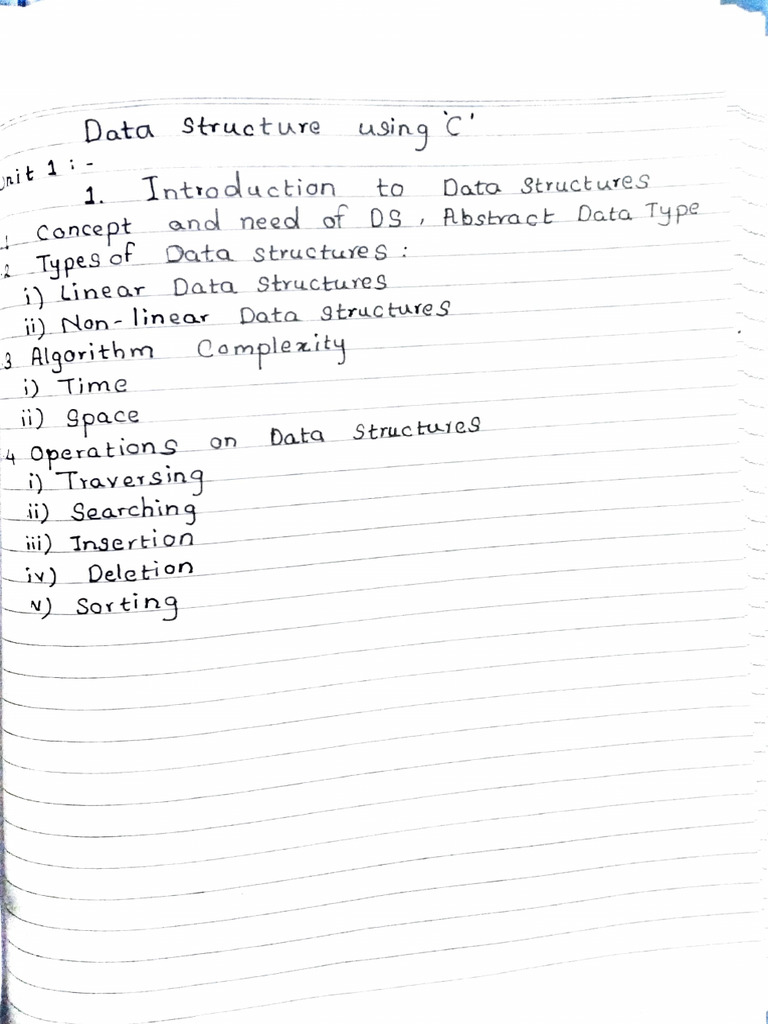 Data structure using 'C'
Unit 1 : -
1. Introduction to Data Structures
.1 Concept and need of DS, Abstract Data Type
.2 Types of Data structures :
i) Linear Data Structures
ii) Non-linear Data structures
3 Algorithm Complexity
i) Time
ii) Space
4 Operations on Data Structures
i) Traversing
ii) Searching
iii) Insertion
iv) Deletion
v) Sorting